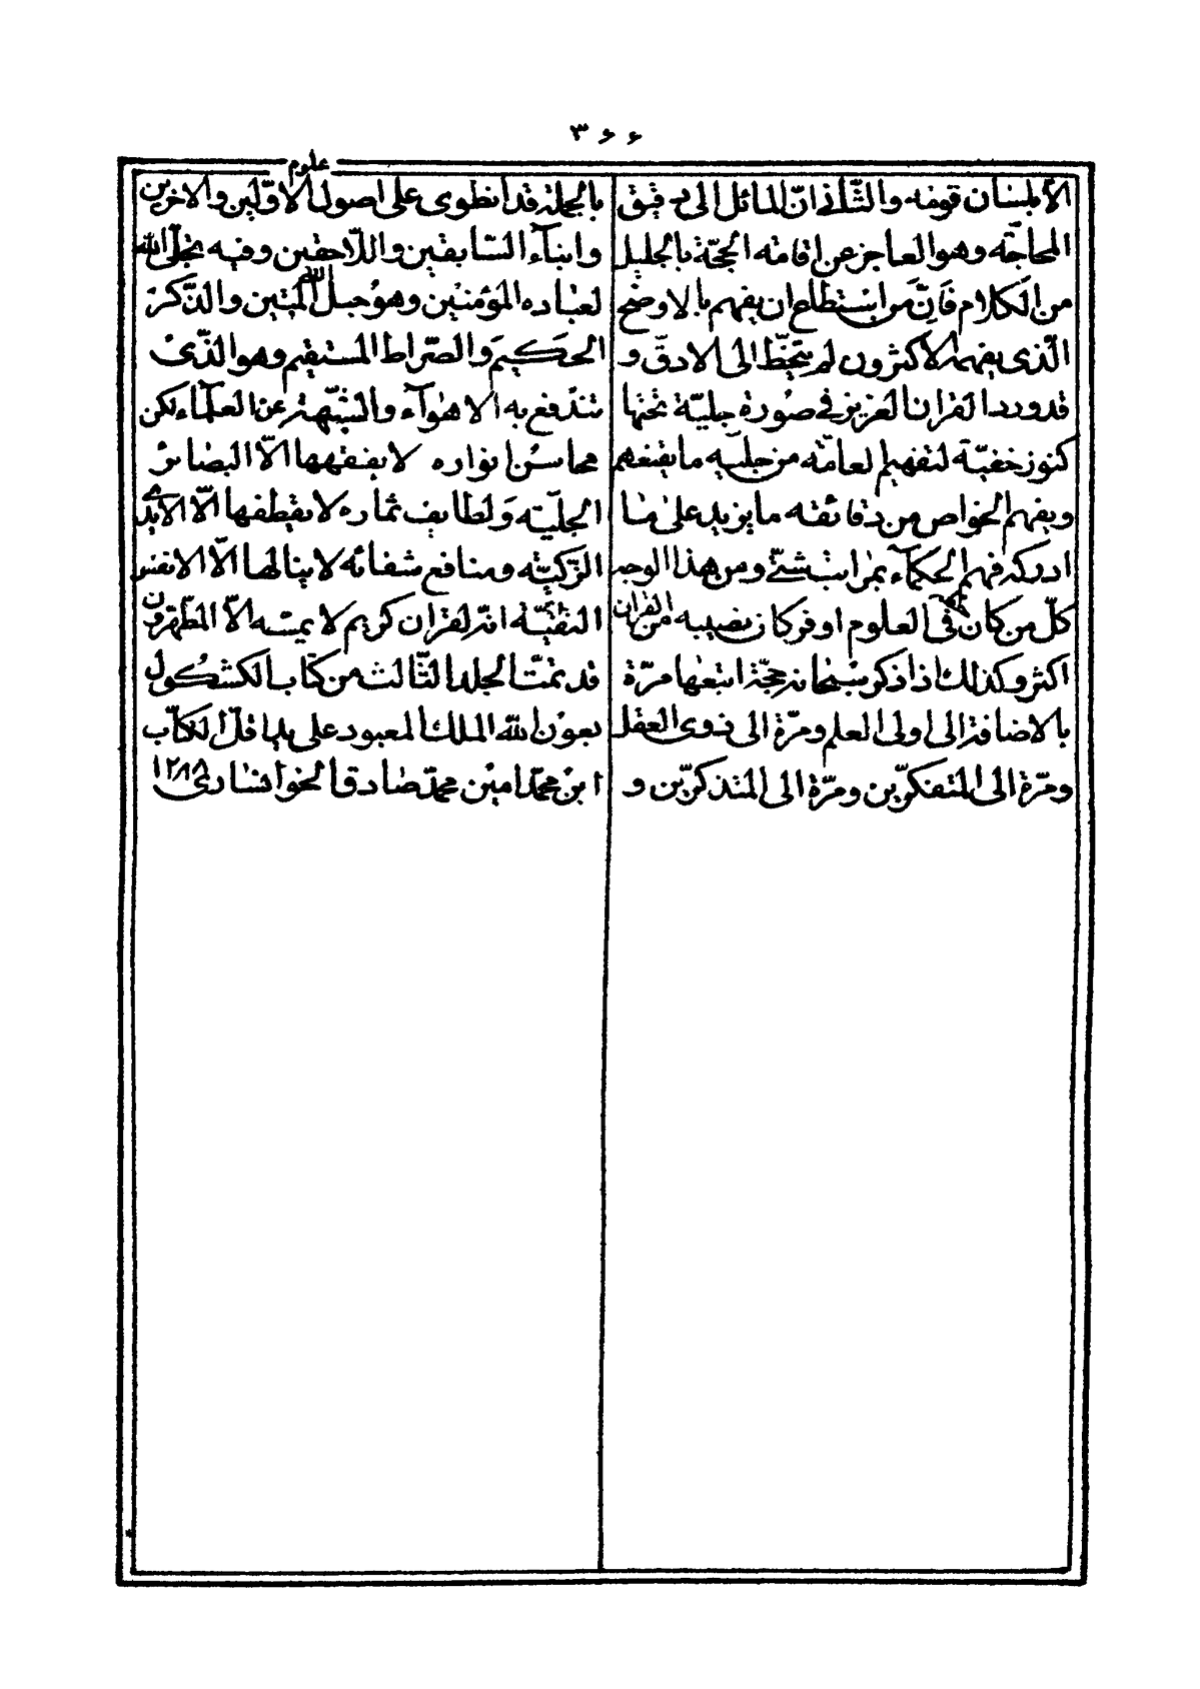 ۳۶۶
علوم
الا بلسان قومه والثّانی انّ المائل الی دقیق
المحاجّه وهو العاجز عن اقامته الحجّة بالجلیل
من الکلام فَاِنّ مَن استطاع ان یفهم بالاوضح
الّذی یفهمه الاکثرون لم یتخطّ الی الادقّ و
قد ورد القرآن العزیز فی صورة جلیّة تحتها
کنوز خفیّة لتفهیم العامّه من جلیّه ما یقنعهم
ویفهم الخواص من دقائقه ما یزید علی ما
ادرکه فهم الحکمآء بمراتب شتّی ومن هذا الوجه
کلّ من کان فی العلوم اوفر کان نصیبه من القران
اکثر وکذلک اذا ذکر سبحانه حجّة اتبعها مرّة
بالاضافة الی اولی العلم ومرّة الی ذوی العقل
ومرّة الی المتفکرّین ومرّة الی المتذکرّین و
بالجملة قد انطوی علی اصول الاوّلین والاخرین
وانبآء السّابقین واللّاحقین وفیه تجلّی الله
لعباده المؤمنین وهو حبل الله المتین والذّکر
الحکیم والصّراط المستقیم وهو الّذی
تندفع به الاهوآء والشّبهة عن العلمآء لکن
محاسن انواره لا یفقهها الّا البصائر
الجلیّه وَلطایف ثماره لا یقطفها الّا الایدی
الزّکیّه ومنافع شفائه لا ینالها الّا الانفس
النقیّه انّه لقران کریم لا یمسّه الّا المطّهرون
قد تمّت الجلد الثّالث من کتاب الکشکول
بعون الله الملک المعبود علی ید اقلّ الکتّاب
ابن محمّد امین محمّد صادق الخوانساری ۱۲۸۸